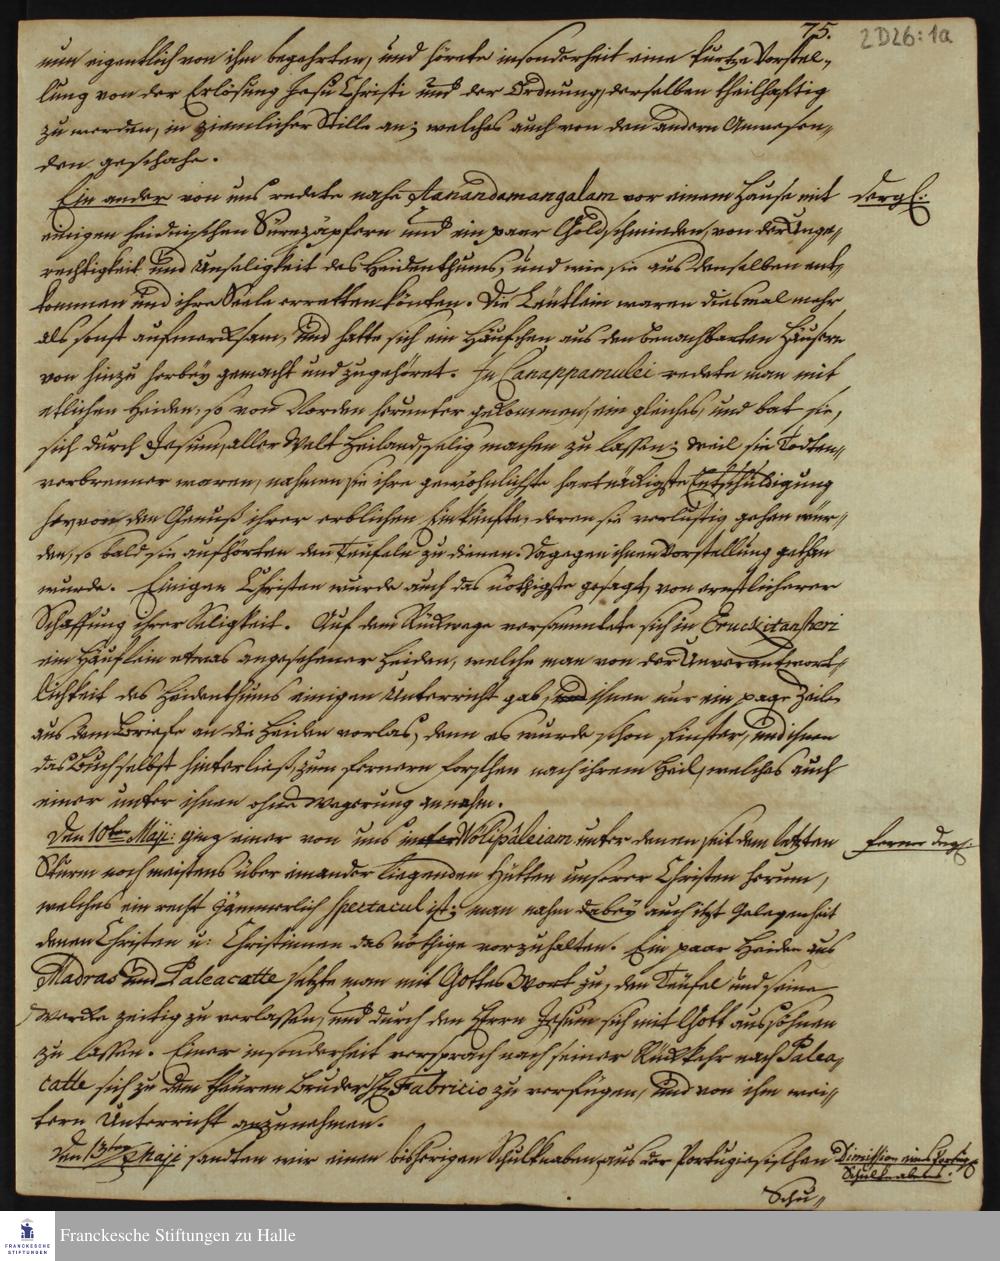 75.
2D26:1a
nun eigentlich von ihm begehrten, und hörete insonderheit eine kurtze Vorstel-
lung von der Erlösung Jesu Christi und der Ordnung, derselben theilhafftig
zu werden, in ziemlicher Stille an; welches auch von den andern Anwesen-
den geschahe.
Ein ander von uns redete nahe Aanandamangalam vor einem Hause mit
dergl:
einigen heidnischen Surezäpfern und ein paar Goldschmieden, von der Unge-
rechtigkeit und Unseligkeit des Heidenthums, und wie sie aus denselben ent-
kommen und ihre Seele erretten könten. Die Leutlein waren diesmal mehr
als sonst aufmercksam, und hatte sich ein Häufchen aus den benachbarten Häusern
von hinzu herbey gemacht und zugehöret. In Canappamulei redete man mit
etlichen Heiden, so von Norden herunter gekommen, ein gleiches, und bat sie,
sich durch Jesum, aller Welt Heiland, selig machen zu lassen; weil sie Todten-
verbrenner waren, nahmen sie ihre gewöhnlichste hartnäckigste Entschuldigung
hervon den Genuß ihrer erblichen Einkünffte, deren sie verlustig gehen wür-
den, so bald sie aufhörten den Teufeln zu dienen. Dagegen ihnen Vorstellung gethan
wurde. Einigen Christen wurde auch das nöthigste gesagt, von ernstlicherer
Schaffung ihrer Seligkeit. Auf dem Rückwege versammlete sich in Eruckitanscheri
ein Häuflein etwas angesehener Heiden, welche man von der Unverantwort-
lichkeit des Heidenthums einigen Unterricht gab, und ihnen nur ein paar Zeilen
aus dem Briefe an die Heiden vorlas, denn es wurde schon finster, und ihnen
das Buch selbst hinterließ, zum fernern forschen nach ihrem Heil, welches auch
einer unter ihnen ohne Wegerung annahm.
Den 10ten Maji: ging einer von uns in Wölipaleiam unter denen seit dem letzten
ferner dergl:
Sturm noch meistens über einander liegenden Hütten unserer Christen herum,
welches ein recht jämmerlich spectacul ist; man nahm dabey auch itzt Gelegenheit
denen Christen u: Christinnen das nöthige vorzuhalten. Ein paar Heiden aus
Madras und Paleacatte setzte man mit Gottes Wort zu, den Teufel und seine
Wercke zeitig zu verlassen, und durch den Herrn Jesum sich mit Gott aussöhnen
zu lassen. Einer insonderheit versprach nach seiner Rückkehr nach Palea-
catte sich zu dem theuren Bruder H. Fabricio zu verfügen, und von ihm wei-
tern Unterricht anzunehmen.
Den 13ten Maji sandten wir einen bisherigen Schulknaben, aus der Portugiesischen
Dimission eines Portug.
Schulknabens.
Schu-
FRANCKESCHE
STIFTUNGEN
Franckesche Stiftungen zu Halle